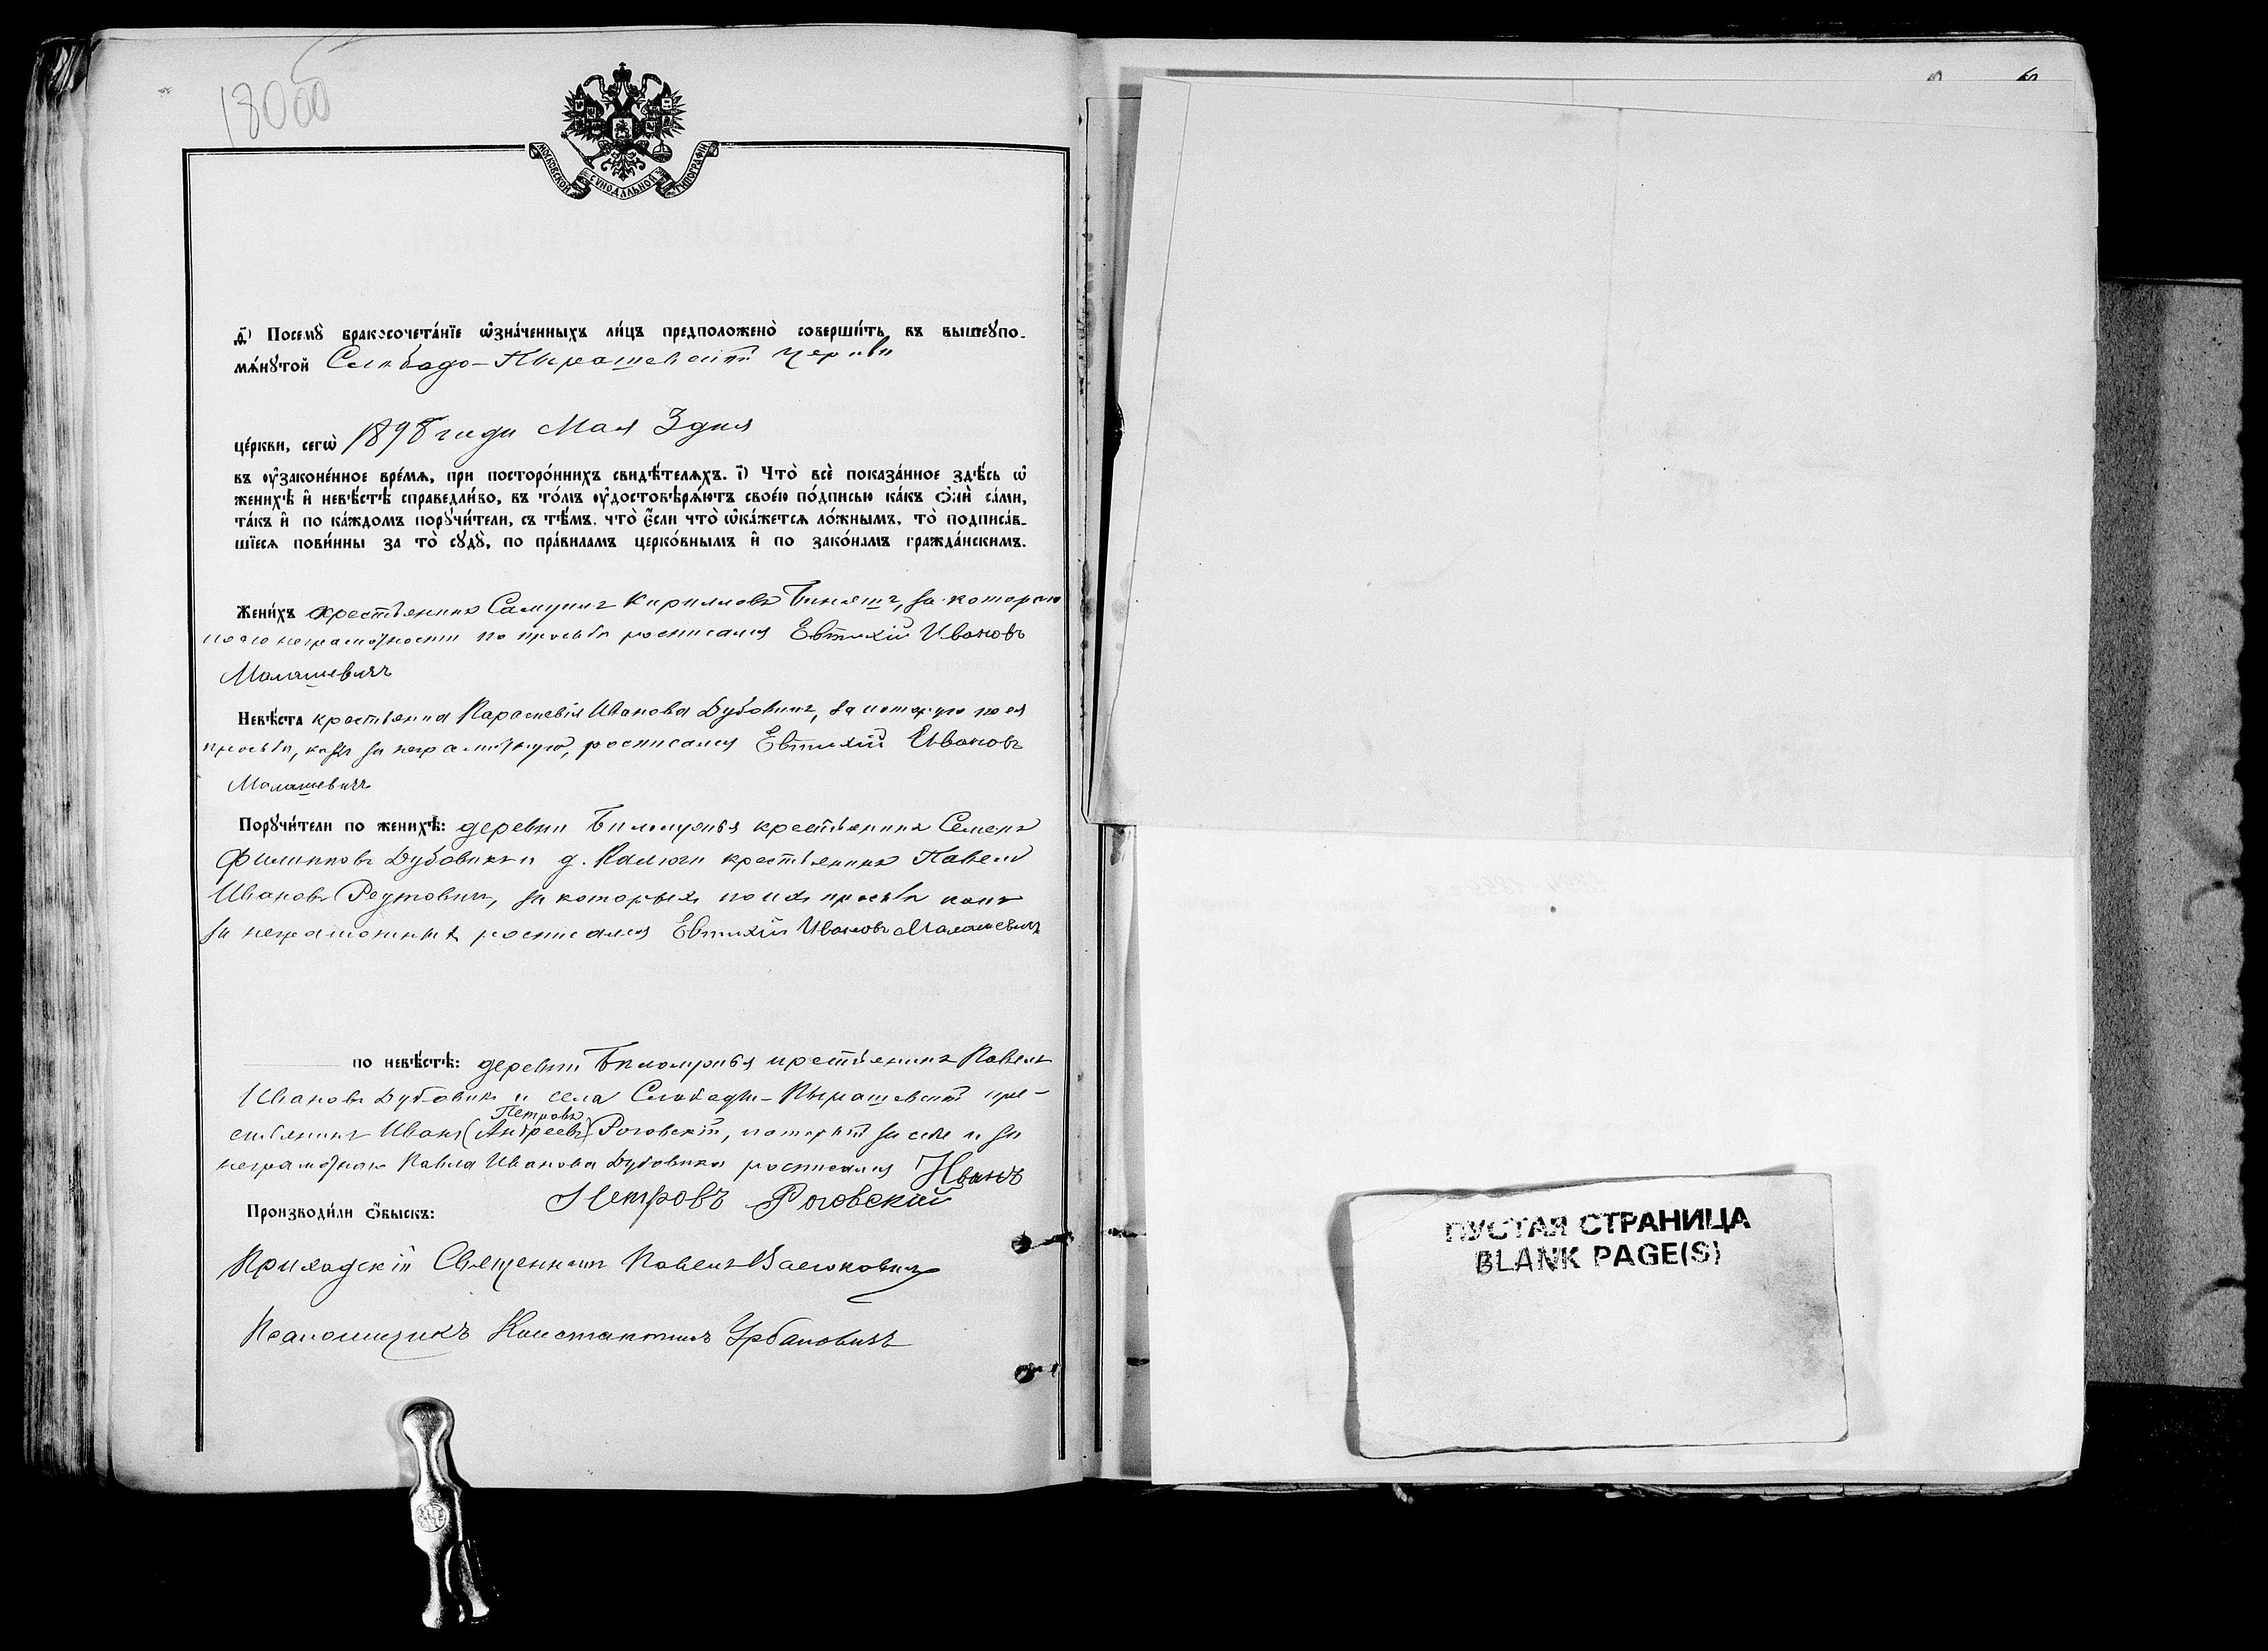 180об
МОСКОВСКОЙ СѴНОДАЛЬНОЙ ТИПОГРАФІИ
д҃) Посемꙋ̀ бракосочета́нїе ѡ҆зна́ченныхъ ли́цъ предположено̀ соверши́ть въ вышеꙋпо-
мѧ́нꙋтой Слободо-Пырашевской церкви
це́ркви, сегѡ̀ 1898 года Мая 3 дня
въ ᲂу҆законе́нное вре́мѧ, при посторо́ннихъ свидѣ́телѧхъ. і҃) Что̀ всѐ показа́нное здѣ́сь ѡ҆
женихѣ̀ и҆ невѣ́стѣ справедли́во, въ то́мъ ᲂу҆достовѣрѧ́ютъ свое́ю по́дписью ка́къ ѻ҆нѝ са́ми,
та́къ и҆ по ка́ждомъ порꙋчи́тели, съ тѣ́мъ, что̀ є҆́сли что̀ ѡ҆ка́жетсѧ ло́жнымъ, то̀ подписа́в-
шїесѧ пови́нны за то̀ сꙋдꙋ̀, по пра́виламъ церко́внымъ и҆ по зако́намъ гражда́нскимъ.
Жени́хъ крестьянинъ Самуилъ Кирилловъ за котораго
по его неграмотности по просьбѣ росписался Евтихій Ивановъ
Малашевичъ
Невѣ́ста крестьянка Параскевія Иванова Дубовикъ, за которую по ея
просьбѣ, какъ за неграмотную, росписался Евтихій Ивановъ
Малашевичъ
Порꙋчи́тели по женихѣ̀: деревни крестьянинъ Семенъ
Филипповъ Дубовикъ и д. Калюги крестьянинъ Павелъ
Ивановъ Реутовичъ, за которыхъ по ихъ просьбѣ какъ
за неграмотныхъ росписался Евтихій Ивановъ Малашевичъ
по невѣ́стѣ: деревни крестьянинъ Павелъ
Ивановъ Дубовикъ и села Слободо-Пырашевской кре-
Петровъ
стьянинъ Иванъ (Андреевъ) Роговскій, который за себя и за
неграмотнаго Павла Иванова Дубовика росписался Иванъ
Петровъ Роговский
Производи́ли ѻ҆́быскъ:
Приходскій Священникъ Павелъ
Псаломщикъ Константинъ Урбановичъ
ПУСТАЯ СТРАНИЦА
BLANK PAGE(S)